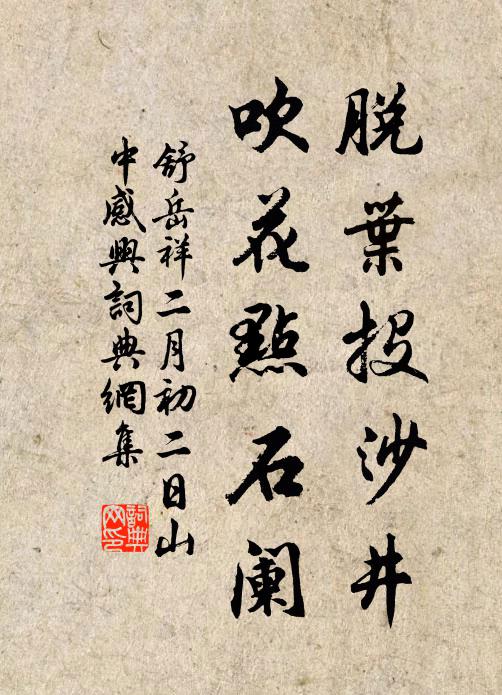 脱葉投沙井
吹花點石阑
舒岳祥二月初二日山
中感興詞典網集
詞典网印